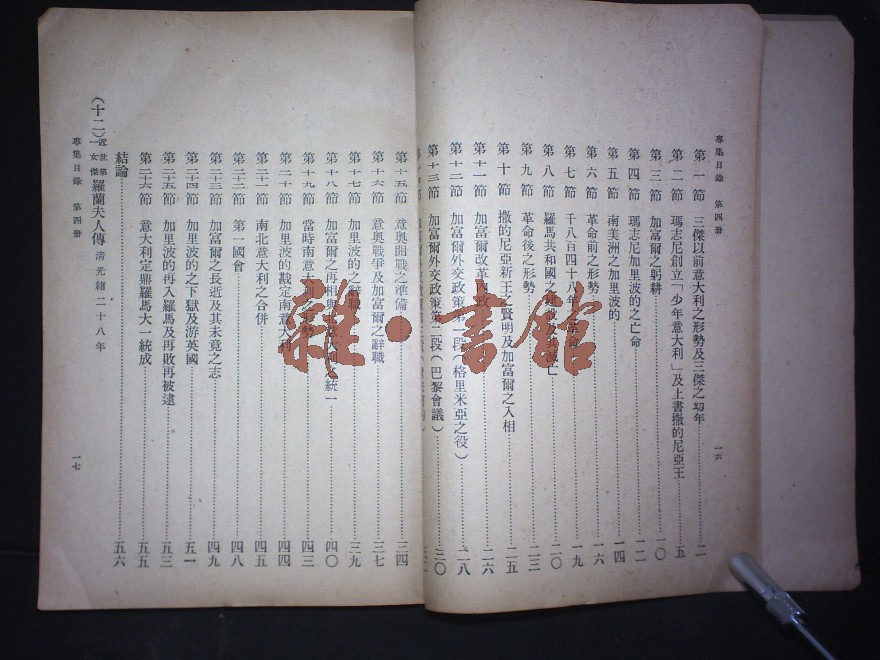 專集目錄 第四册
第一節 三傑以前意大利之形勢及三傑之幼年 二
第二節 瑪志尼創立「少年意大利」及上書撒的尼亞王 五
第三節 加富爾之躬耕 一〇
第四節 瑪志尼加里波的之亡命 一二
第五節 南美洲之加里波的 一四
第六節 革命前之形勢 一六
第七節 千八百四十八年 革命 一九
第八節 羅馬共和國之建設及其滅亡 二〇
第九節 革命後之形勢 二三
第十節 撒的尼亞新王之賢明及加富爾之入相 二五
第十一節 加富爾改革內政 二六
第十二節 加富爾外交政策第一段(格里米亞之役) 二八
第十三節 加富爾外交政策第二段(巴黎會議) 三〇
一六
第十五節 意奧開戰之準備 三四
第十六節 意奧戰爭及加富爾之辭職 三七
第十七節 加里波的之辭職 三九
第十八節 加富爾之再相與 意大利之統一 四〇
第十九節 當時南意大利之形勢 四三
第二十節 加里波的戡定南意大利 四四
第二十一節 南北意大利之合併 四五
第二十二節 第一國會 四八
第二十三節 加富爾之長逝及其未竟之志 四九
第二十四節 加里波的之下獄及游英國 五一
第二十五節 加里波的再入羅馬及再敗再被逮 五三
第二十六節 意大利定鼎羅馬大一統成 五五
結論 五六
(十二)近世第一女傑羅蘭夫人傳 清光緒二十八年
專集目錄 第四册
一七
雜·書館